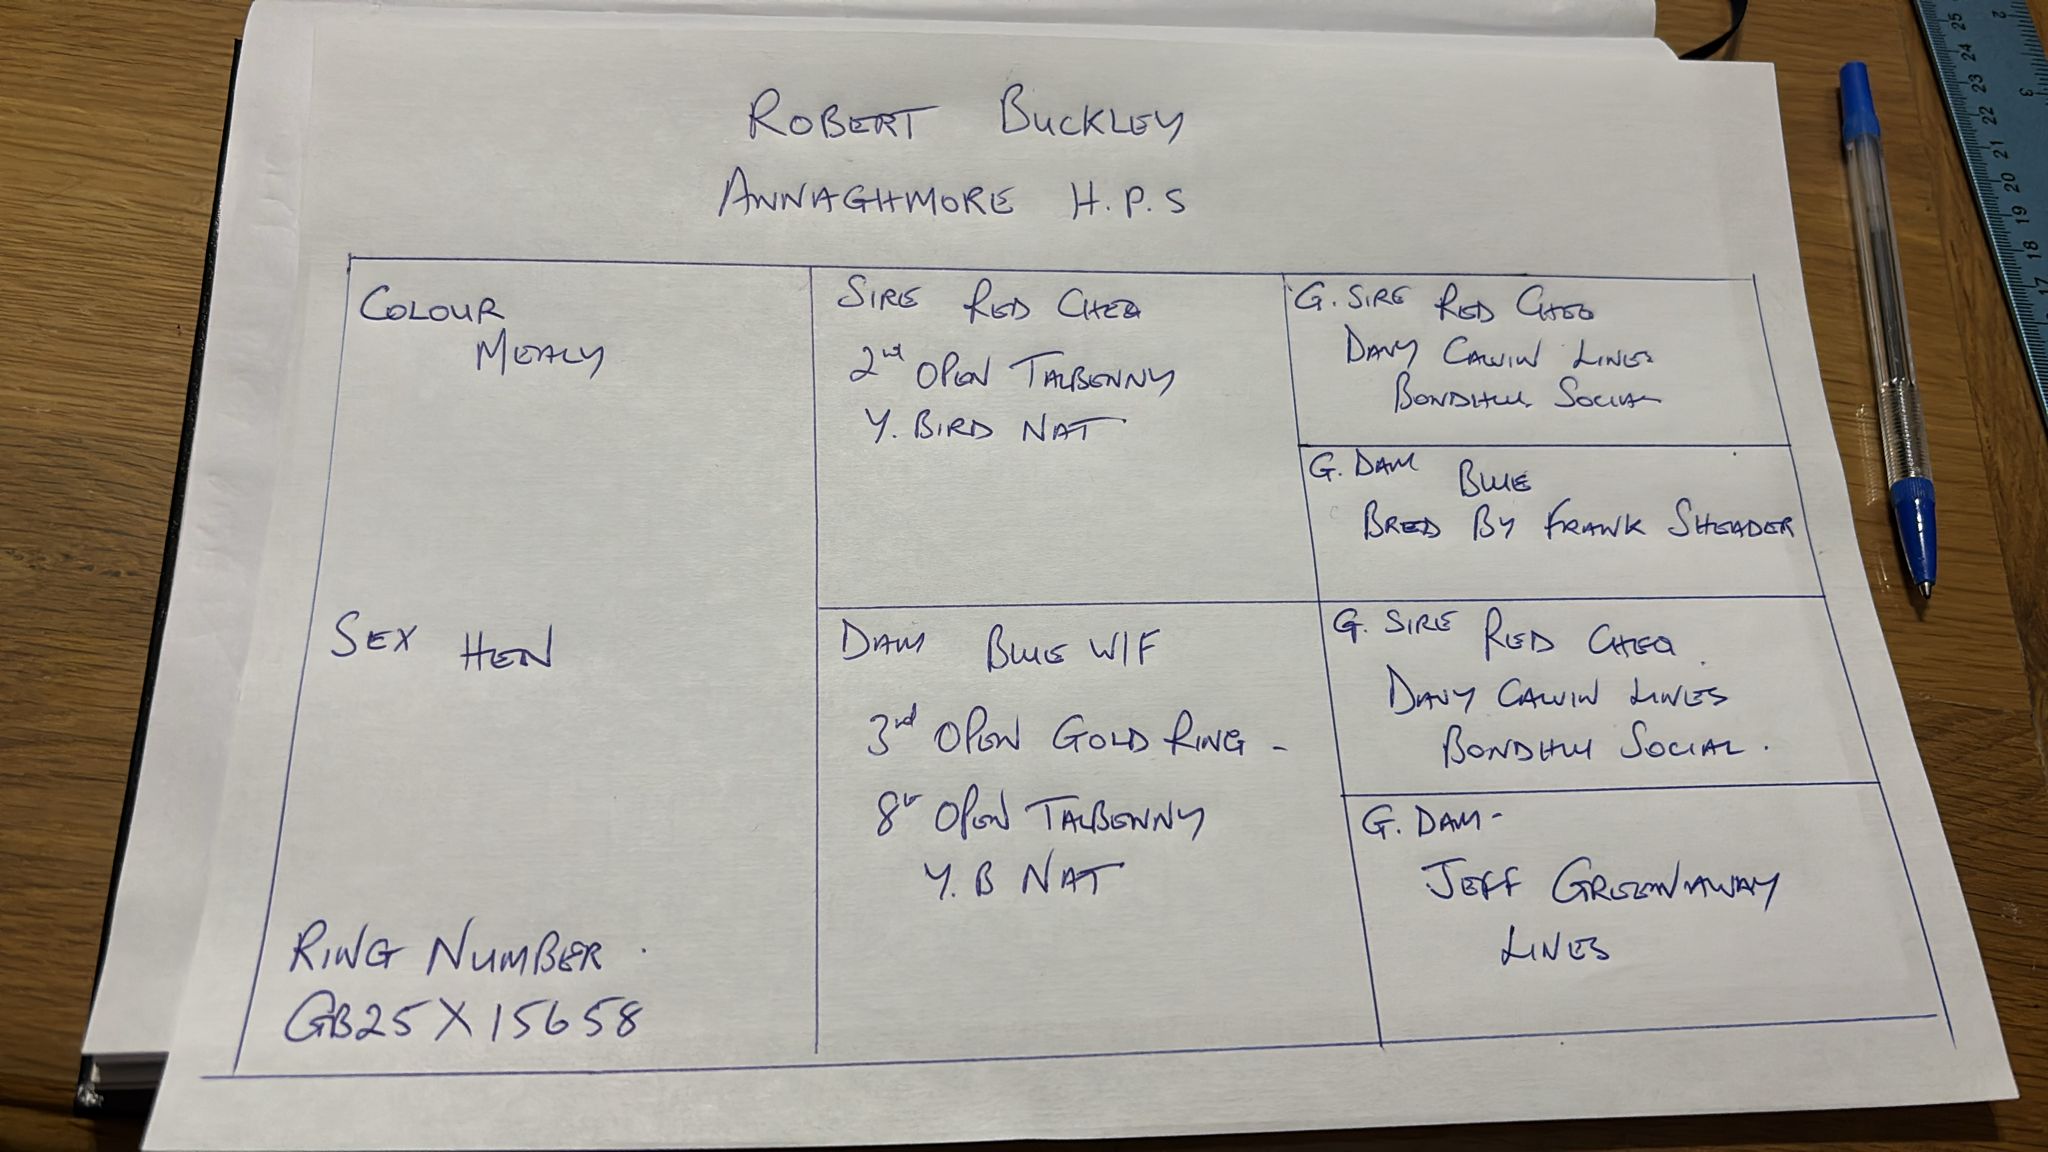 ROBERT BUCKLEY
ANNAGHMORE H.P.S
COLOUR
MEALY
SEX HEN
RING NUMBER.
GB25X15658
SIRE RED CHEQ
2nd OPEN TALBENNY
Y. BIRD NAT
DAM BLUE W/F
3rd OPEN GOLD RING -
8th OPEN TALBENNY
Y. B NAT
G. SIRE RED CHEQ
DAVY CALVIN LINES
BONDHILL SOCIAL
G. DAM BLUE
BRED BY FRANK SHEADER
G. SIRE RED CHEQ.
DAVY CALVIN LINES
BONDHILL SOCIAL.
G. DAM-
JEFF GREENAWAY
LINES
25 24 23 22 21 20 19 18 17
2
3